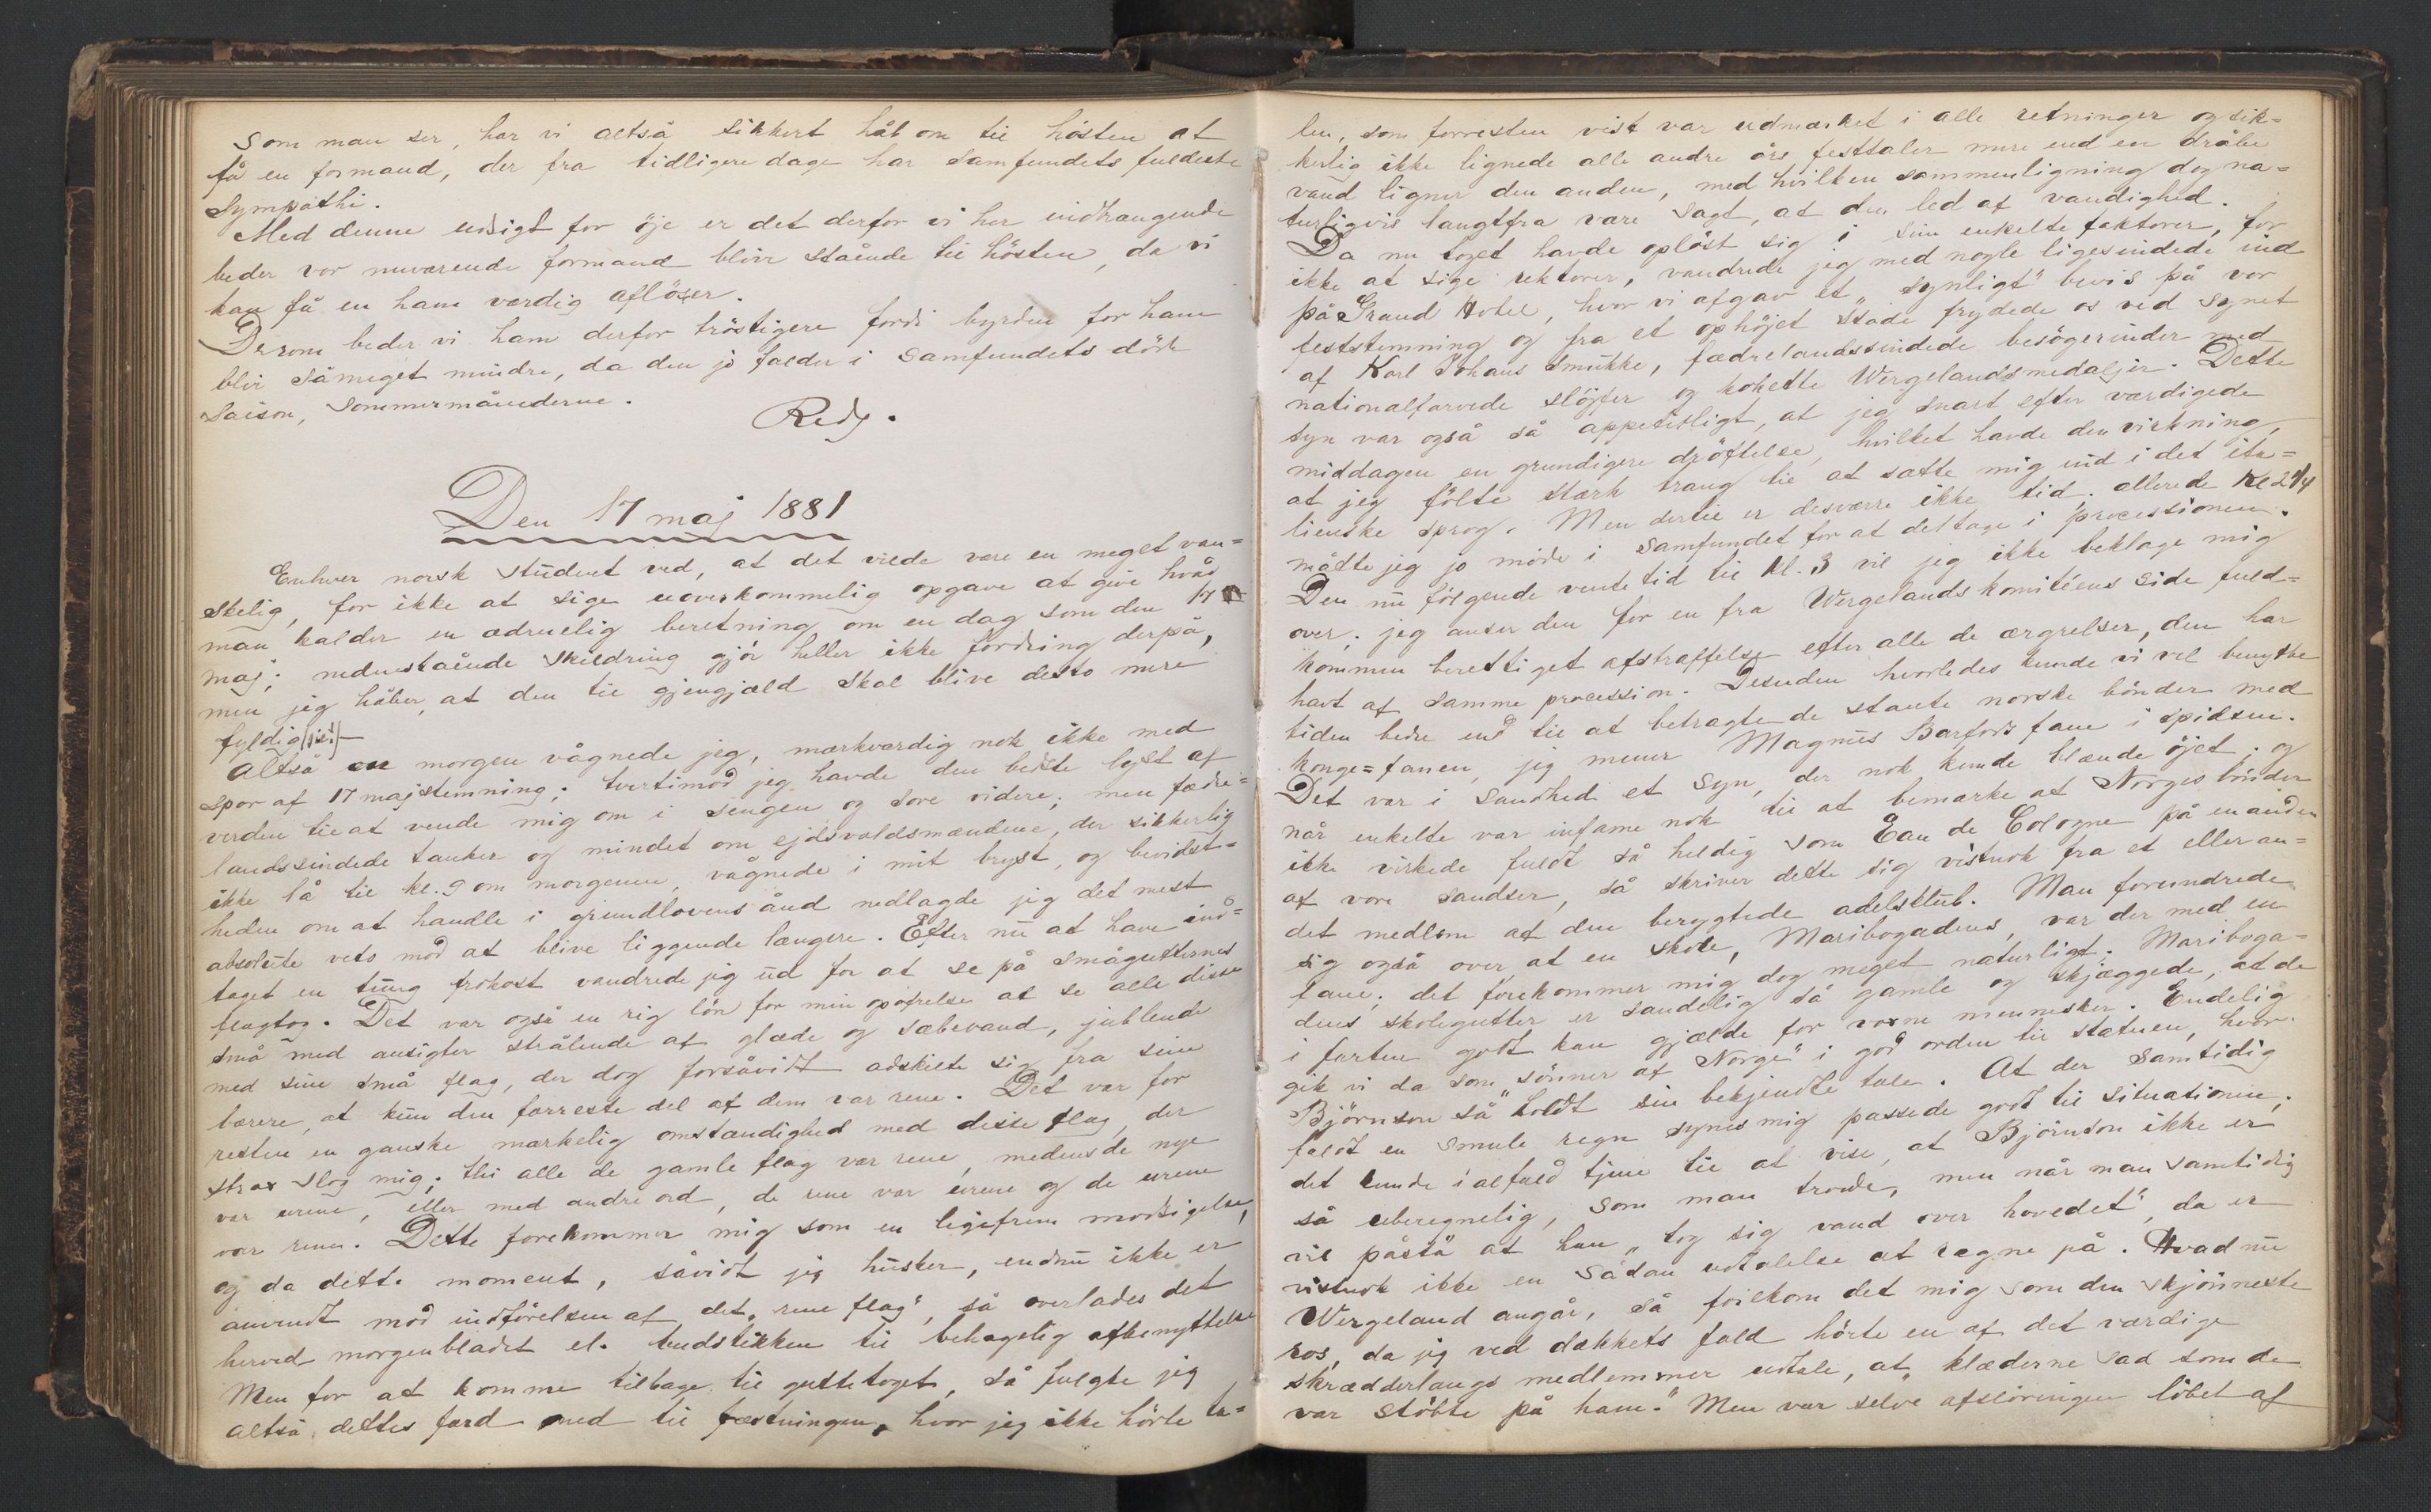 Som man ser, har vi altså sikkert håb om til hösten at
få en formand, der fra tidligere dage har Samfundets fuldeste
Sympathi.
Med denne udsigt for öje er det derfor vi her indtrængende
beder vor nuværende formand blive stående til hösten, da vi
kan få en ham værdig aflöser.
Desom beder vi ham derfor tröstigere fordi byrden for ham
blir såmeget mindre, da den jo falder i Samfundets döde
Saison, Sommermånederne.
Redg.
Den 17 maj 1881
Enhver norsk student ved, at det vilde være en meget van=
skelig, for ikke at sige uoverkommelig opgave at give hvad
man kalder en ædruelig beretning om en dag som den 17
maj; nedenstående skildring gjör heller ikke fordring derpå,
men jeg håber, at den til gjengjæld skal blive desto mere
fyldig (sic!)
Altså om morgen vågnede jeg, mærkværdig nok ikke med
spor af 17 majstemning; tvertimod jeg havde den bedste lyst af
verden til at vende mig om i sengen og sove videre; men fædre=
landssindede tanker og mindet om ejdsvoldsmændene, der sikkerlig
ikke lå til kl. 9 om morgenen, vågnede i mit bryst, og bevidst=
heden om at handle i grundlovens ånd nedlagde jeg det mest
absolute veto mod at blive liggende længere. Efter nu at have ind=
taget en tung frokost vandrede jeg ud for at se på smågutternes
flagtog. Det var også en rig lön for min opofrelse at se alle disse
små med ansigter strålende af glæde og sæbevand, jublende
med sine små flag, der dog forsåvidt adskilte sig fra sine
bærere, at kun den færreste del af dem var rene. Det var for
resten en ganske mærkelig omstændighed med disse flag, der
strax slog mig; thi alle de gamle flag var rene, medens de nye
var urene, eller med andre ord, de rene var urene og de urene
var rene. Dette forekommer mig som en ligefrem modsigelse,
og da dette moment, såvidt jeg husker, endnu ikke er
anvendt mod indförelsen af det „rene flag", så overlades det
herved morgenbladet el. budstikken til behagelig afbenyttelse
Men for at komme tilbage til guttetoget, så fulgte jeg
altså dettes færd ned til fæstningen, hvor jeg ikke hörte ta=
len, som forresten vist var udmærket i alle retninger og sik=
kerlig ikke lignede alle andre års festtaler mere end en dråbe
vand ligner den anden, med hvilken sammenligning dog na=
turligvis langtfra være sagt, at den led af vandighed.
Da nu toget havde oplöst sig i sine enkelte faktorer, for
ikke at sige rektorer, vandrede jeg med nogle ligesindede ind
på Grand Hotel, hvor vi afgav et „synligt" bevis på vor
feststemning og fra et ophöjet stade frydede os ved synet
af Karl Johans smukke, fædrelandssindede besögerinder med
nationalfarvede slöjfer og kokette Wergelandsmedaljer. Dette
syn var også så appetitligt, at jeg snart efter værdigede
middagen en grundigere dröftelse, hvilket havde den virkning,
at jeg fölte stærk trang til at sætte mig ind i det ita=
lienske sprog. Men dertil er desværre ikke tid; allerede Kl 2 1/4
måtte jeg jo möde i Samfundet for at deltage i processionen.
Den nu fölgende ventetid til kl. 3 vil jeg ikke beklage mig
over; jeg anser den for en fra Wergelandskomitéens side fuld=
kommen berettiget afstraffelse efter alle de ærgrelser, den har
havt af samme procession. Desuden hvorledes kunde vi vel benytte
tiden bedre end til at betragte de staute norske bönder med
konge=fanen, jeg mener Magnus Barfods fane i spidsen.
Det var i sandhed et syn, der nok kunde blænde öjet; og
når enkelte var infame nok til at bemærke at Norges bönder
ikke virkede fuldt så heldig som Eau de Cologne på en anden
af vore sandser, så skriver dette sig vistnok fra et eller an=
det medlem af den berygtede adelsklub. Man forundrede
sig også over, at en skole, Maribogadens, var der med en
fane; det forekommer mig dog meget naturligt. Mariboga=
dens skolegutter er sandelig så gamle og skjæggede, at de
i farten godt kan gjælde for voxne mennesker. Endelig
gik vi da som „sönner af Norge" i god orden til statuen, hvor
Björnson så holdt sin bekjendte tale. At der samtidig
faldt en smule regn synes mig passede godt til situationen;
det kunde ialfald tjene til at vise, at Björnson ikke er
så uberegnelig, som man troede, men når man samtidig
vil påstå at han „tog sig vand over hovedet", da er
vistnok ikke en sådan udtalelse at regne på. Hvad nu
Wergeland angår, så forekom det mig som den skjönneste
ros, da jeg ved dækkets fald hörte en af det værdige
skrædderlaugs medlemmer udtale, at „klæderne sad som de
var stöbte på ham." Men var selve afslöringen löbet af